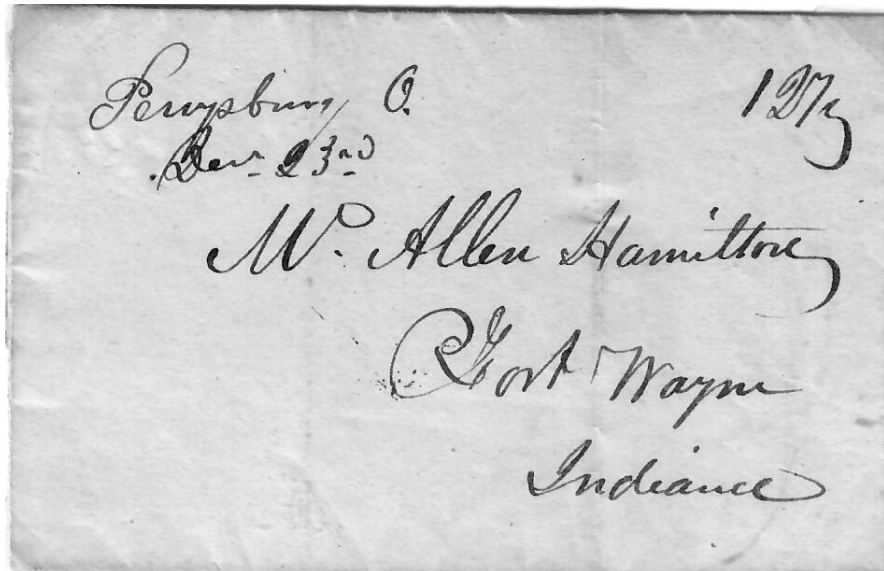 Perrysburg O.
Decr 23rd
Mr. Allen Hamilton
Fort Wayne
Indiana